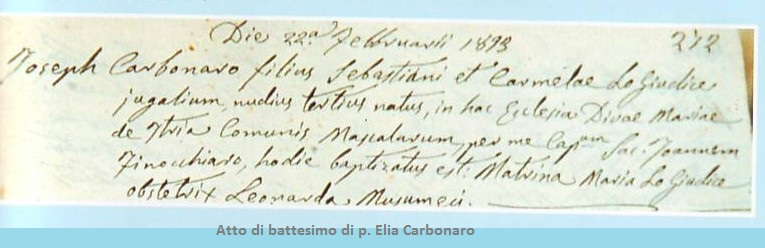 Die 22.a Februarii 1893 212
Joseph Carbonaro filius Sebastiani et Carmelae Lo Giudice
jugalium, nudius tertius natus, in hac Ecclesia Divae Mariae
de Itria Comunis Mascalarum, per me Cap.am Sac. Joannem
Finocchiaro, hodie baptizatus est: Matrina Maria Lo Giudice
obstetrix Leonarda Musumeci.
Atto di battesimo di p. Elia Carbonaro